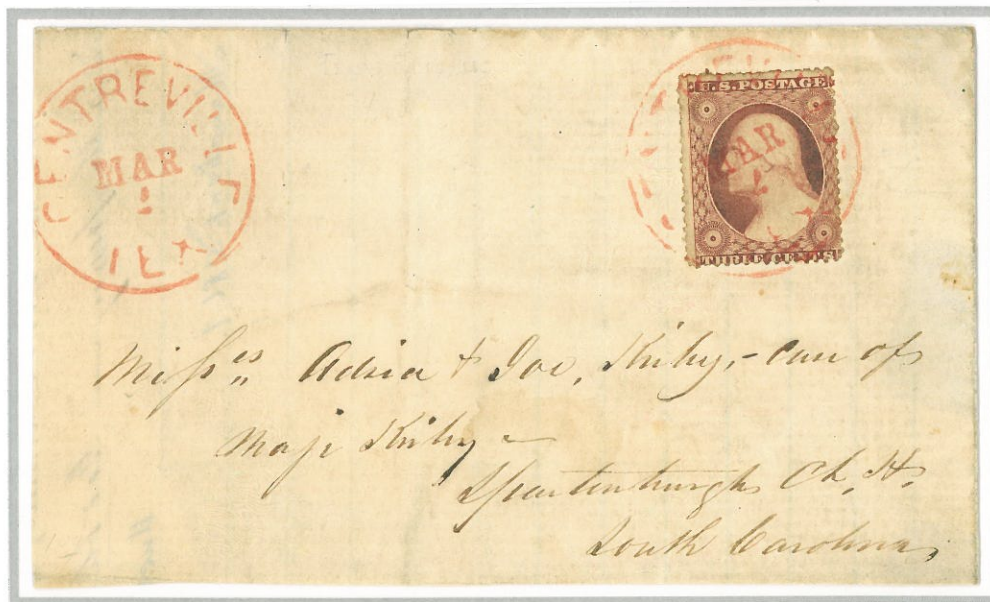 CENTREVILLE
MAR
1
TEX
U.S. POSTAGE
MAR
1
THREE CENTS
Miſses Adria & Joe, Kirby, - Care of
Maj. Kirby -
Spartenburgh Ct. Hs.
South Carolina,